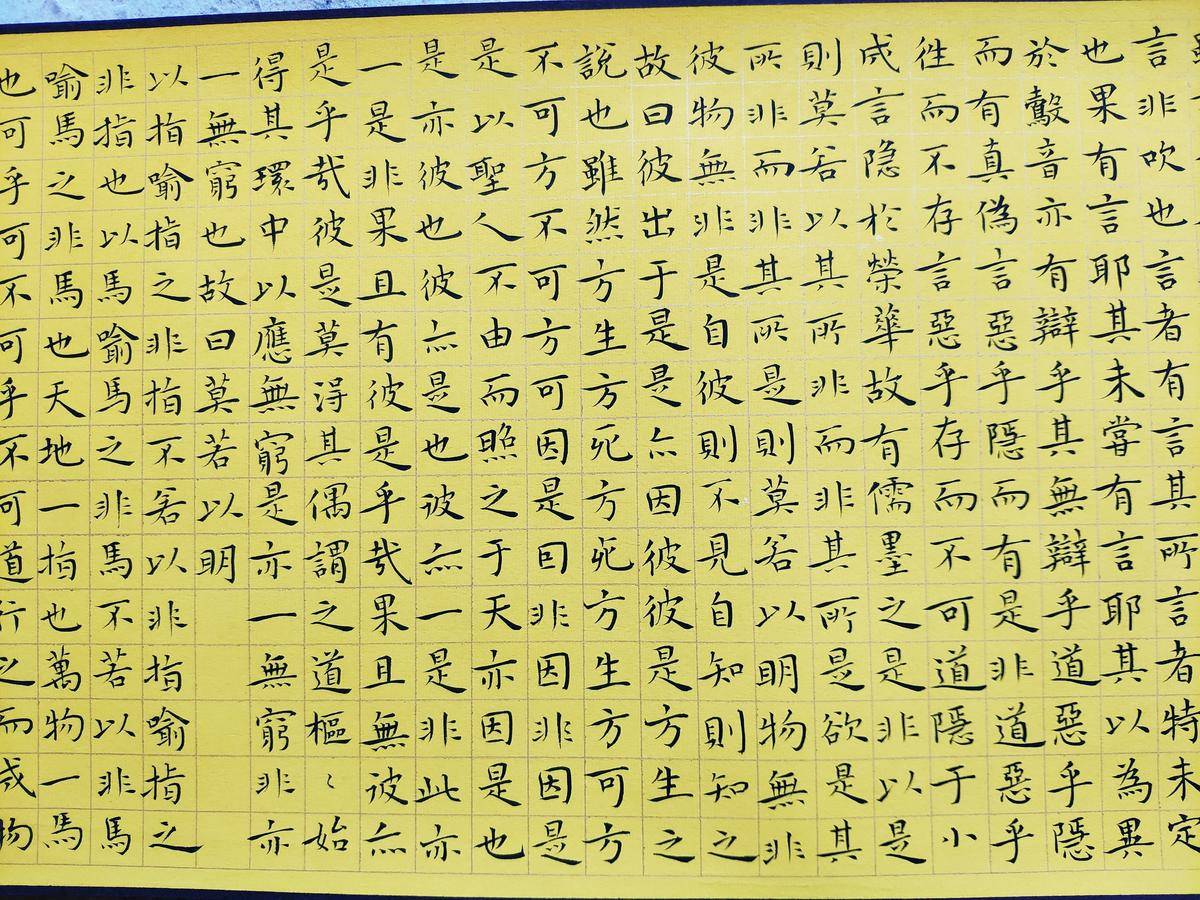 言非吹也言者有言其所言者特未定
也果有言耶其未嘗有言耶其以為異
於鷇音亦有辯乎其無辯乎道惡乎隱
而有真偽言惡乎隱而有是非道惡乎
往而不存言惡乎存而不可道隱于小
成言隐於榮華故有儒墨之是非以是
則莫若以其所非而非其所是欲是其
所非而非其所是則莫若以明物無非
彼物無非是自彼則不見自知則知之
故曰彼出于是是亦因彼彼是方生之
說也雖然方生方死方死方生方可方
不可方不可方可因是因非因非因是
是以聖人不由而照之于天亦因是也
是亦彼也彼亦是也彼亦一是非此亦
一是非果且有彼是乎哉果且無彼亦
是乎哉彼是莫得其偶謂之道樞〻始
得其環中以應無窮是亦一無窮非亦
一無窮也故曰莫若以明
以指喻指之非指不若以非指喻指之
非指也以馬喻馬之非馬不若以非馬
喻馬之非馬也天地一指也萬物一馬
也可乎可不可乎不可道行之而成物